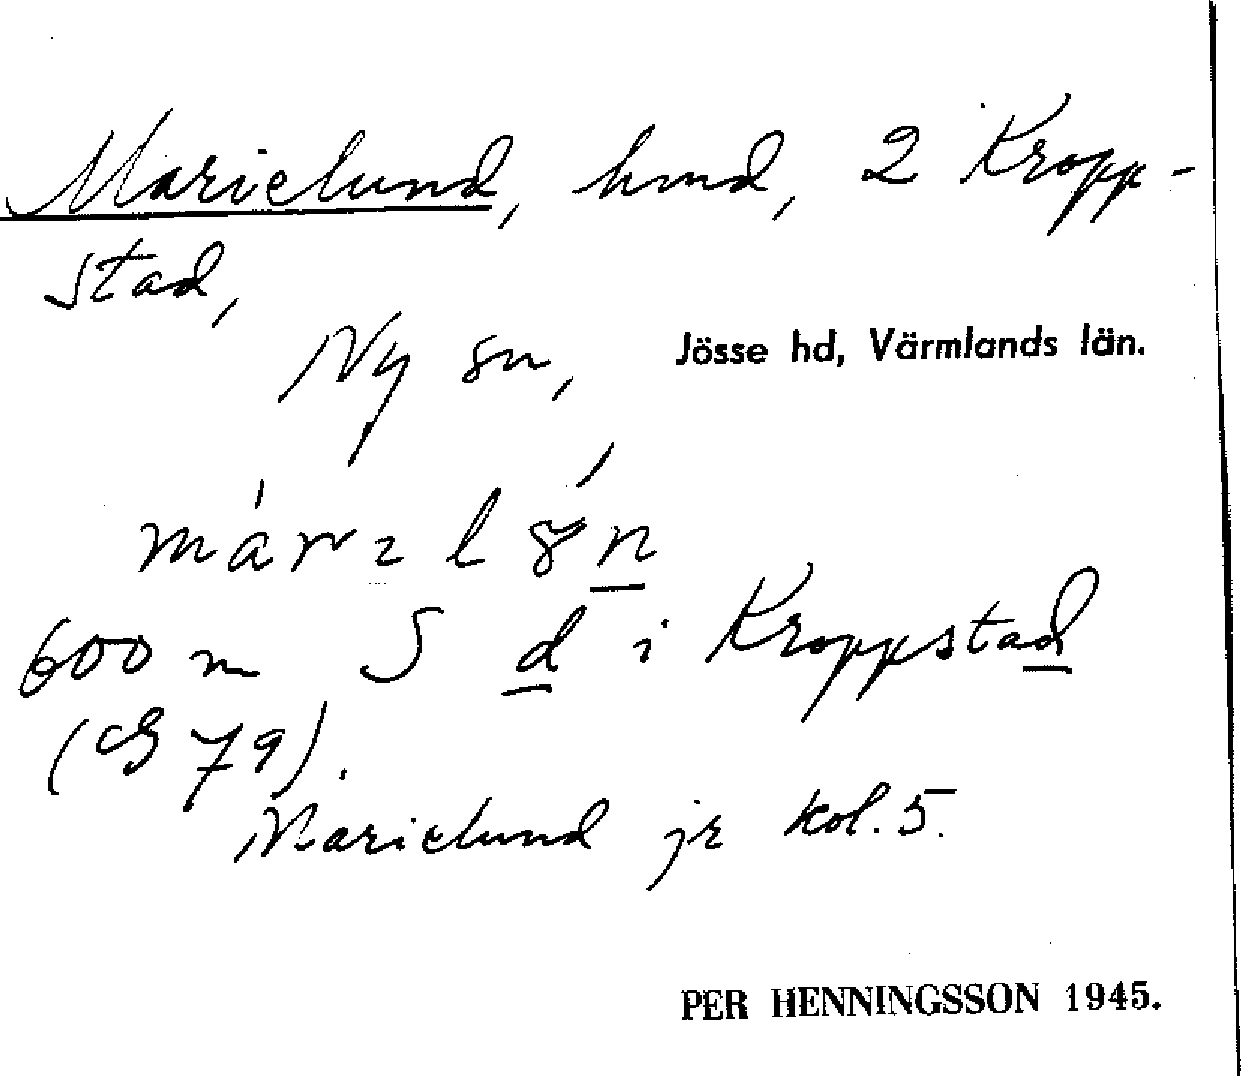 Marielund, hmd, 2 Kropp-
stad,
Ny sn, Jösse hd, Värmlands län.
600 m S d i Kroppstad
(G 79).
Marielund jr kol. 5.
PER HENNINGSSON 1945.